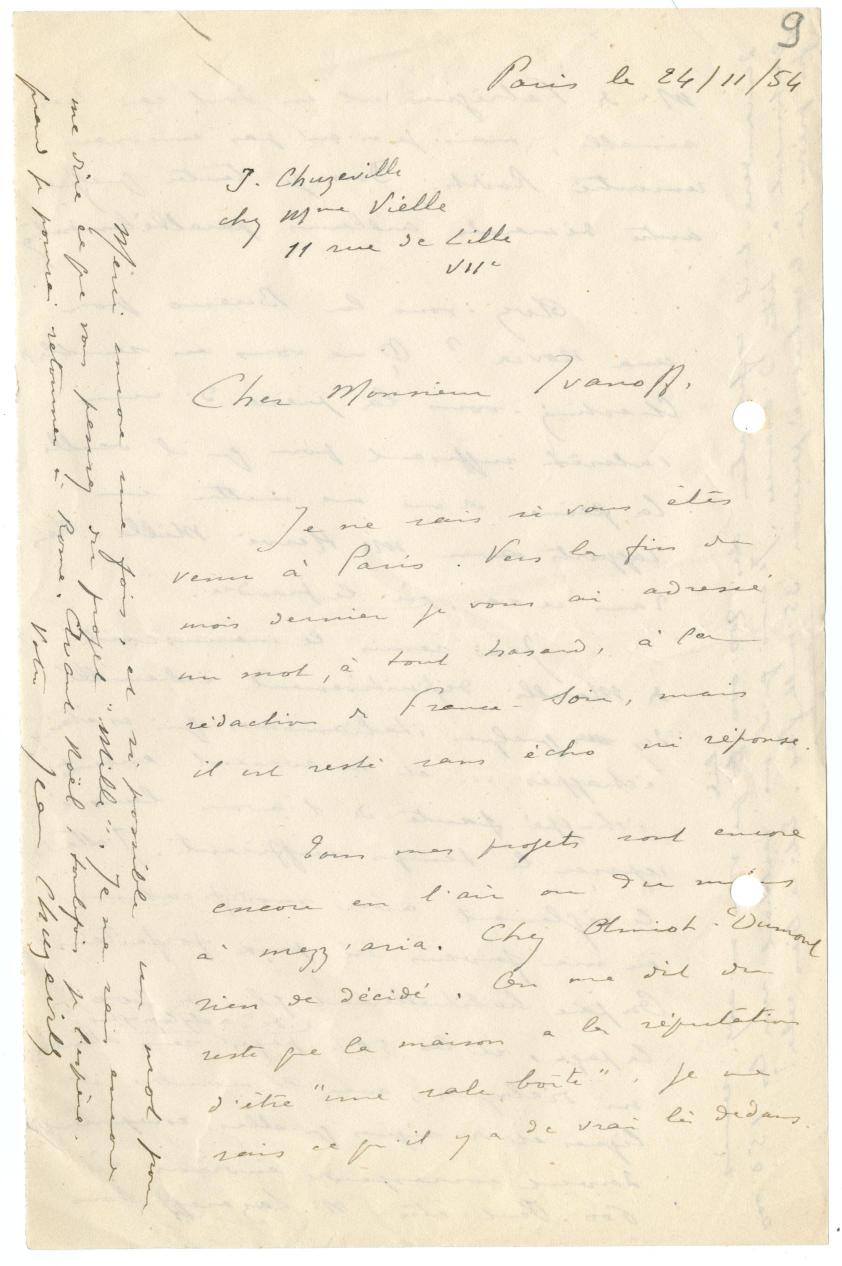 9
Paris le 24/11/54
J. Chuzeville
chez Mme Vielle
11 rue de Lille
VIIe
Cher Monsieur Ivanoff,
Je ne sais si vous êtes
venu à Paris. Vers la fin du
mois dernier je vous ai adressé
un mot, à tout hasard, à la
rédaction de France-Soir, mais
il est resté sans écho ni réponse.
Tous mes projets sont encore
encore en l'air ou du moins
à mezz'aria. Chez Amiot-Dumont
rien de décidé. On me dit du
reste que la maison a la réputation
d'être "une sale boîte". Je ne
sais ce qu'il y a de vrai là dedans.
Merci encore une fois, et si possible un mot pour
me dire ce que vous pensez du projet "Mille". Je ne sais encore
quand je pourrai retourner à Rome. Avant Noël toutefois je l'espère.
Votre Jean Chuzeville